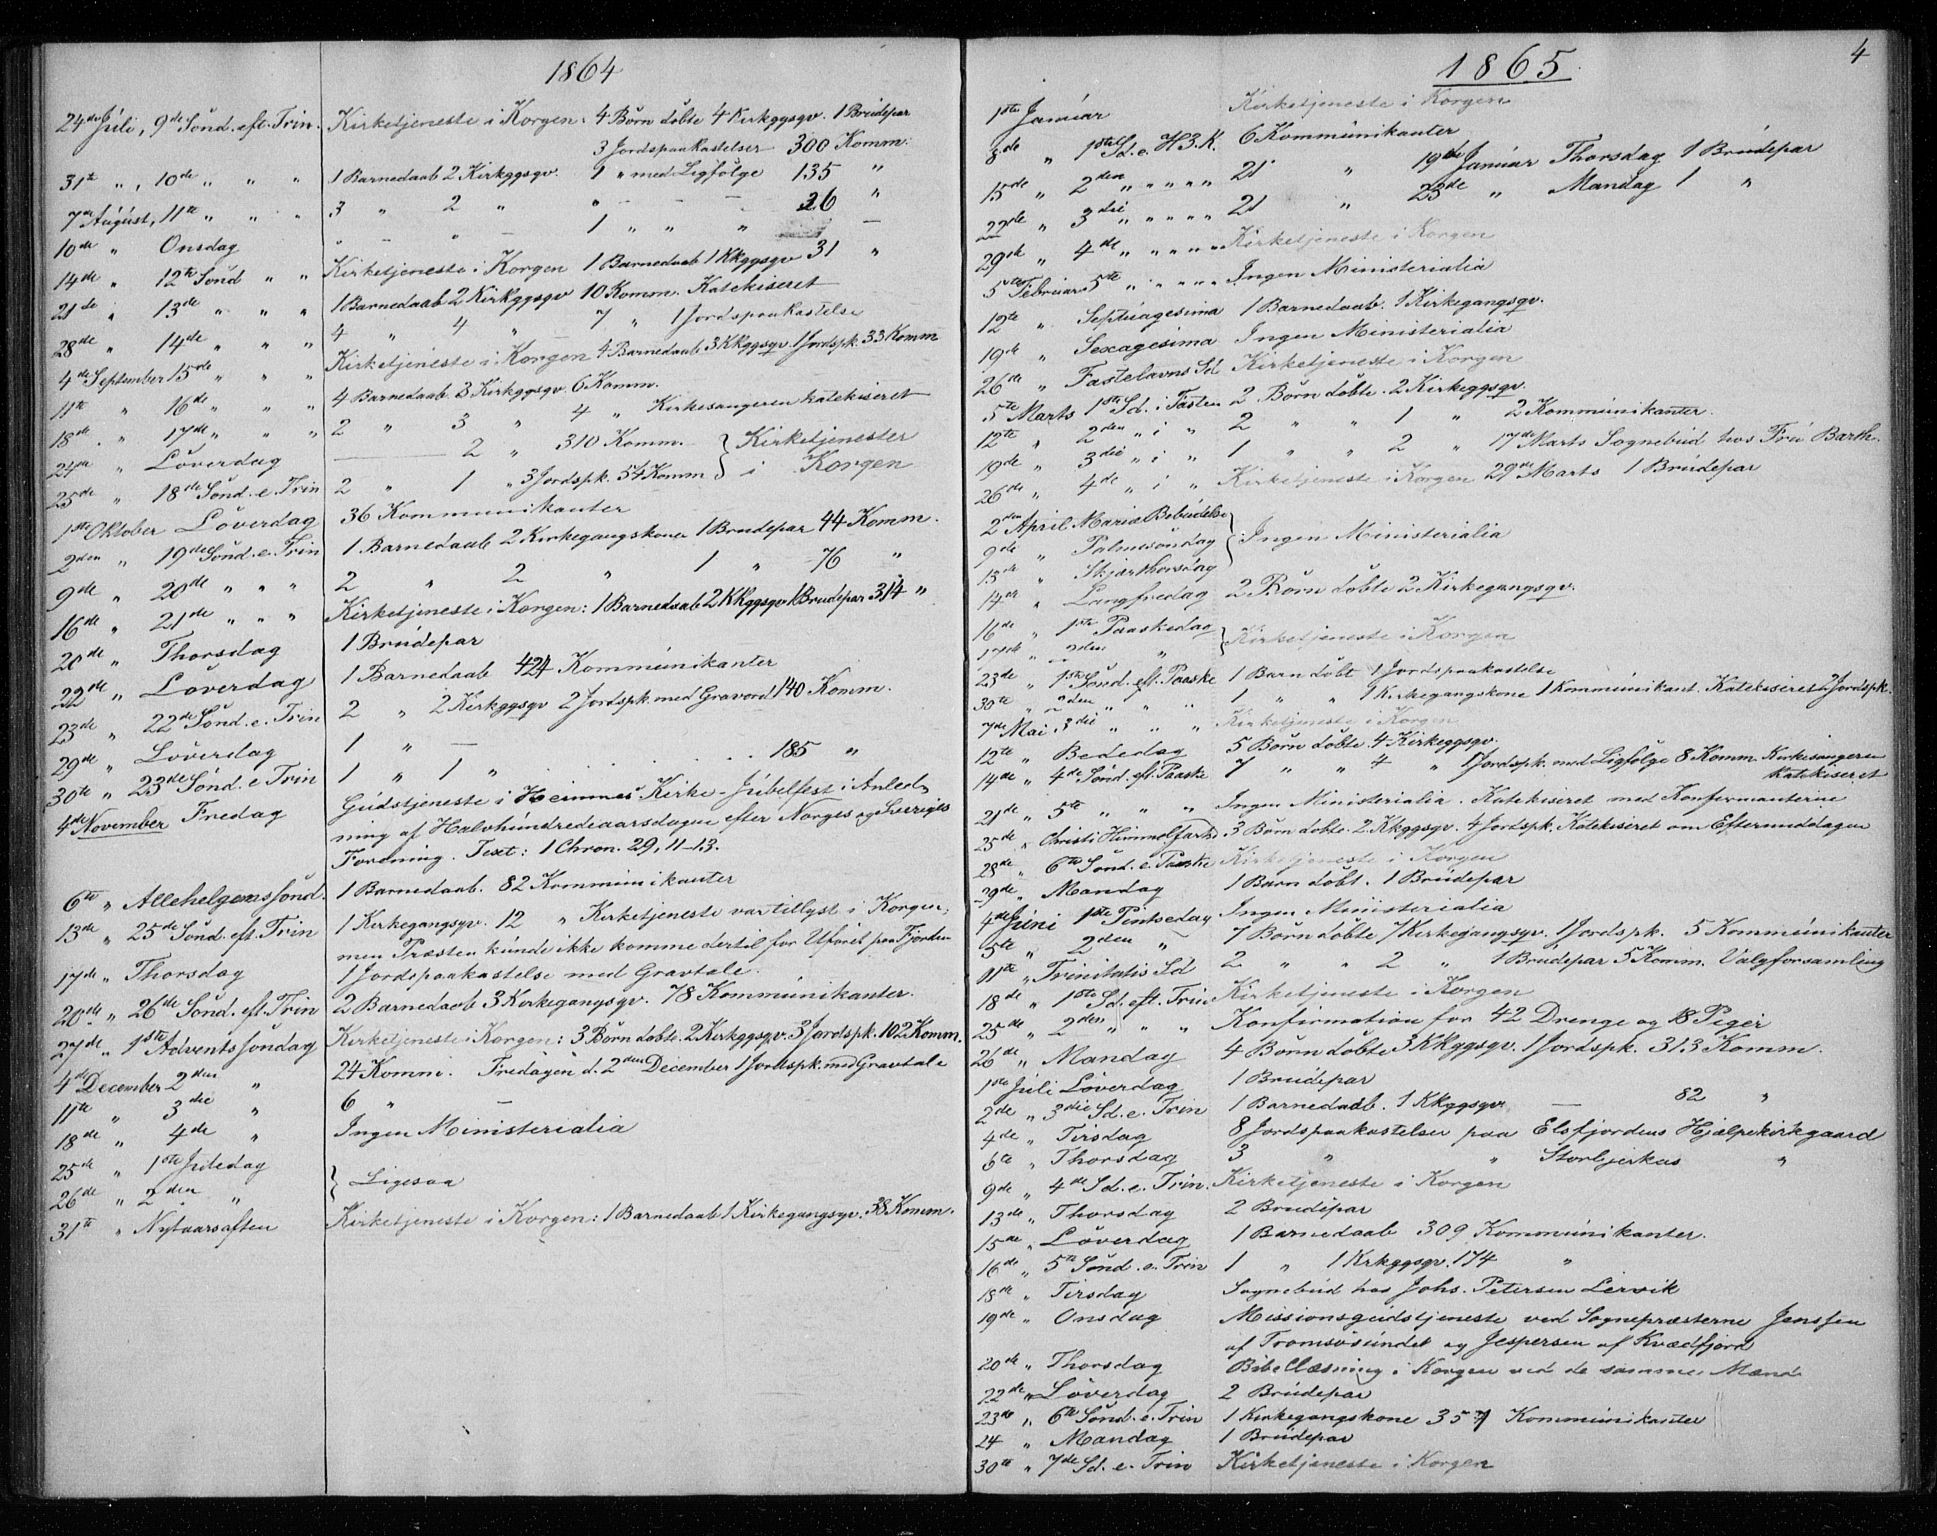 1864
24de Juli, 9de Sönd. eft. Trin. Kirketjeneste i Korgen: 4 Börn döbte 4 Kirkggsqv. 1 Brudepar
3 Jordspaakastelser 300 Komm:
31te " , 10de " " " 1 Barnedaab 2 Kirkggsqv. 1 " med Ligfölge 135 "
7de August, 11te " " " 3 " 2 " " - - - 26 "
10de " Onsdag " - " - 1 " " " -
14de " 12te Sönd " " Kirketjeneste i Korgen 1 Barnedaab 1 Kkggsqv 31 "
21de " 13de " " " 1 Barnedaab 2 Kirkggsqv 10 Komm. Katekiseret
28de " 14de " " " 4 " 4 " 7 " 1 Jordspaakastelse
4de September 15de " " " Kirketjeneste i Korgen 4 Barnedaab 3 Kkggsqv. 1 Jordspk. 33 Komm
11te " 16de " " " 4 Barnedaab 3 Kirkggsqv. 6 Komm.
18de " 17de " " " 2 " 3 " 4 " Kirkesangeren katekiseret
24de " Löverdag 2 " 310 Komm. } Kirketjenester
25de " 18de Sönd. e. Trin 2 " 1 " 3 Jordspk. 54 Komm } i Korgen
1ste Oktober Löverdag 36 Kommunikanter
2den " 19de Sönd. e. Trin 1 Barnedaab 2 Kirkegangskoner 1 Brudepar 44 Komm.
9de " 20de " " " 2 " 2 " 1 " 76 "
16de " 21de " " " Kirketjeneste i Korgen: 1 Barnedaab 2 Kkggsqv 1 Brudepar 314 "
20de " Thorsdag 1 Brudepar
22de " Löverdag 1 Barnedaab 424 Kommunikanter
23de " 22de Sönd. e. Trin 2 " 2 Kirkggsqv 2 Jordspk. med Gravord 140 Komm.
29de " Löverdag 1 " - 185 "
30te " 23de Sönd. e Trin 1 " 1 "
4de November Fredag Gudstjeneste i Hemnes Kirke - Jubelfest i Anled-
ning af Halvhundredeaarsdagen efter Norges og Sveriges
Forening. Text: 1 Chron. 29, 11-13.
6te " Allehelgenssönd. 1 Barnedaab. 82 Kommunikanter
13de " 25de Sönd. eft. Trin 1 Kirkegangsqv. 12 " Kirketjeneste var tillyst i Korgen,
men Præsten kunde ikke komme dertil for Uföret paa Fjorden
17de " Thorsdag 1 Jordspaakastelse med Gravtale.
20de " 26de Sönd. eft. Trin 2 Barnedaab 3 Kirkegangsqv. 78 Kommunikanter.
27de " 1ste Adventssöndag Kirketjeneste i Korgen: 3 Börn döbte. 2 Kirkggsqv. 3 Jordspk. 102 Komm.
4de December 2den " 24 Komm. Fredagen d. 2den December 1 Jordspk. med Gravtale
11te " 3die " 6 "
18de " 4de " Ingen Ministerialia
25de " 1ste Juledag
26de " 2den " } Ligesaa
31te " Nytaarsaften Kirketjeneste i Korgen: 1 Barnedaab 1 Kirkegangsqv. 38 Komm.
4
1865
1ste Januar Kirketjeneste i Korgen
8de " 1ste Sd. e. H3.K. 6 Kommunikanter
15de " 2den " " " " 21 " 19de Januar Thorsdag 1 Brudepar
22de " 3die " " " " 21 " 23de " Mandag 1 "
29de " 4de " " " " Kirketjeneste i Korgen
5te Februar 5te " " " " Ingen Ministerialia
12te " Septuagesima 1 Barnedaab. 1 Kirkegangsqv.
19de " Sexagesima Ingen Ministerialia
26de " Fastelavns Sd Kirketjeneste i Korgen
5te Marts 1ste Sd. i Fasten 2 Börn döbte. 2 Kirkeggsqv.
12te " 2den " i " 2 " " 1 " 2 Kommunikanter.
19de " 3die " i " 1 " " 2 " 17de Marts Sognebud hos Fru Barth.
26de " 4de " i " Kirketjeneste i Korgen 29de Marts 1 Brudepar
2den April Mariæ Bebudelse
9de " Palmesöndag } Ingen Ministerialia
13de " Skjærthorsdag
14de " Langfredag 2 Börn döbte 2 Kirkegangsqv.
16de " 1ste Paaskedag } Kirketjeneste i Korgen
17de " 2den "
23de " 1ste Sönd. eft. Paaske 1 Barn döbt 1 Jordspaakastelse
30te " 2den " " " 1 " " 1 Kirkegangskone 1 Kommunikant. Katekiseret 2 Jordspk.
7de Mai 3die " " " Kirketjeneste i Korgen
12te " Bededag 5 Börn döbte. 4 Kirkeggsqv.
14de " 4de Sönd. eft. Paaske 7 " " 4 " 1 Jordspk. med Ligfölge 8 Komm. Kirkesangeren
katekiseret
21de " 5te " " " Ingen Ministerialia. Katekiseret med Konfirmanterne
25de " Christi Himmelfartsd 3 Börn döbte. 2 Kkggsqv. 4 Jordspk. Katekiseret om Eftermiddagen
28de " 6te Sönd. e. Paaske Kirketjeneste i Korgen
29de " Mandag 1 Barn döbt. 1 Brudepar
4de Juni 1ste Pintsedag Ingen Ministerialia
5te " 2den " 7 Börn döbte 7 Kirkegangsqv. 1 Jordspk. 5 Kommunikanter
11te " Trinitatis Sd 2 " " 2 " 1 Brudepar 5 Komm. Valgforsamling
18de " 1ste Sd. eft. Trin Kirketjeneste i Korgen
25de " 2den " " " Konfirmation for 42 Drenge og 18 Piger
26de " Mandag 4 Börn döbte 3 Kkggsqv. 1 Jordspk. 313 Komm.
1ste Juli Löverdag 1 Brudepar
2de " 3die Sd. e. Trin 1 Barnedaab. 1 Kkggsqv - 82 "
4de " Tirsdag 8 Jordspaakastelser paa Elsfjordens Hjælpekirkgaard
6te " Thorsdag 3 " " Storbjerkas "
9de " 4de Sd. e. Trin. Kirketjeneste i Korgen
13de " Thorsdag 2 Brudepar
15de " Löverdag 1 Barnedaab 309 Kommunikanter.
16de " 5te Sönd. e. Trin 1 " 1 Krkggsqv. 174 "
18de " Tirsdag Sognebud hos Johs. Petersen Lervik
19de " Onsdag Missionsgudstjeneste ved Sognepræsterne Jenssen
af Tromsösundet og Jespersen af Kvædfjord
20de " Thorsdag Bibellæsning i Korgen ved de samme Mænd
22de " Löverdag 2 Brudepar
23de " 6te Sönd. e. Trin 1 Kirkegangskone 357 Kommunikanter
24 " Mandag 1 Brudepar
30te " 7de Sd. e. Trin Kirketjeneste i Korgen